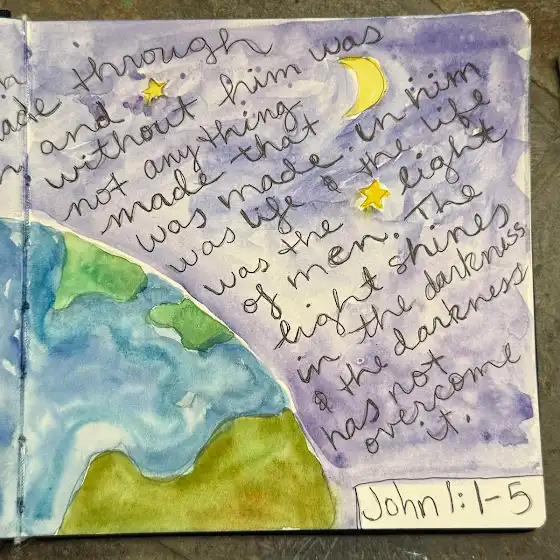 made through
and
without him was
not anything
made that
was made. In him
was life & the life
was the light
of men. The
light shines
in the darkness
& the darkness
has not
overcome
it.
John 1:1-5